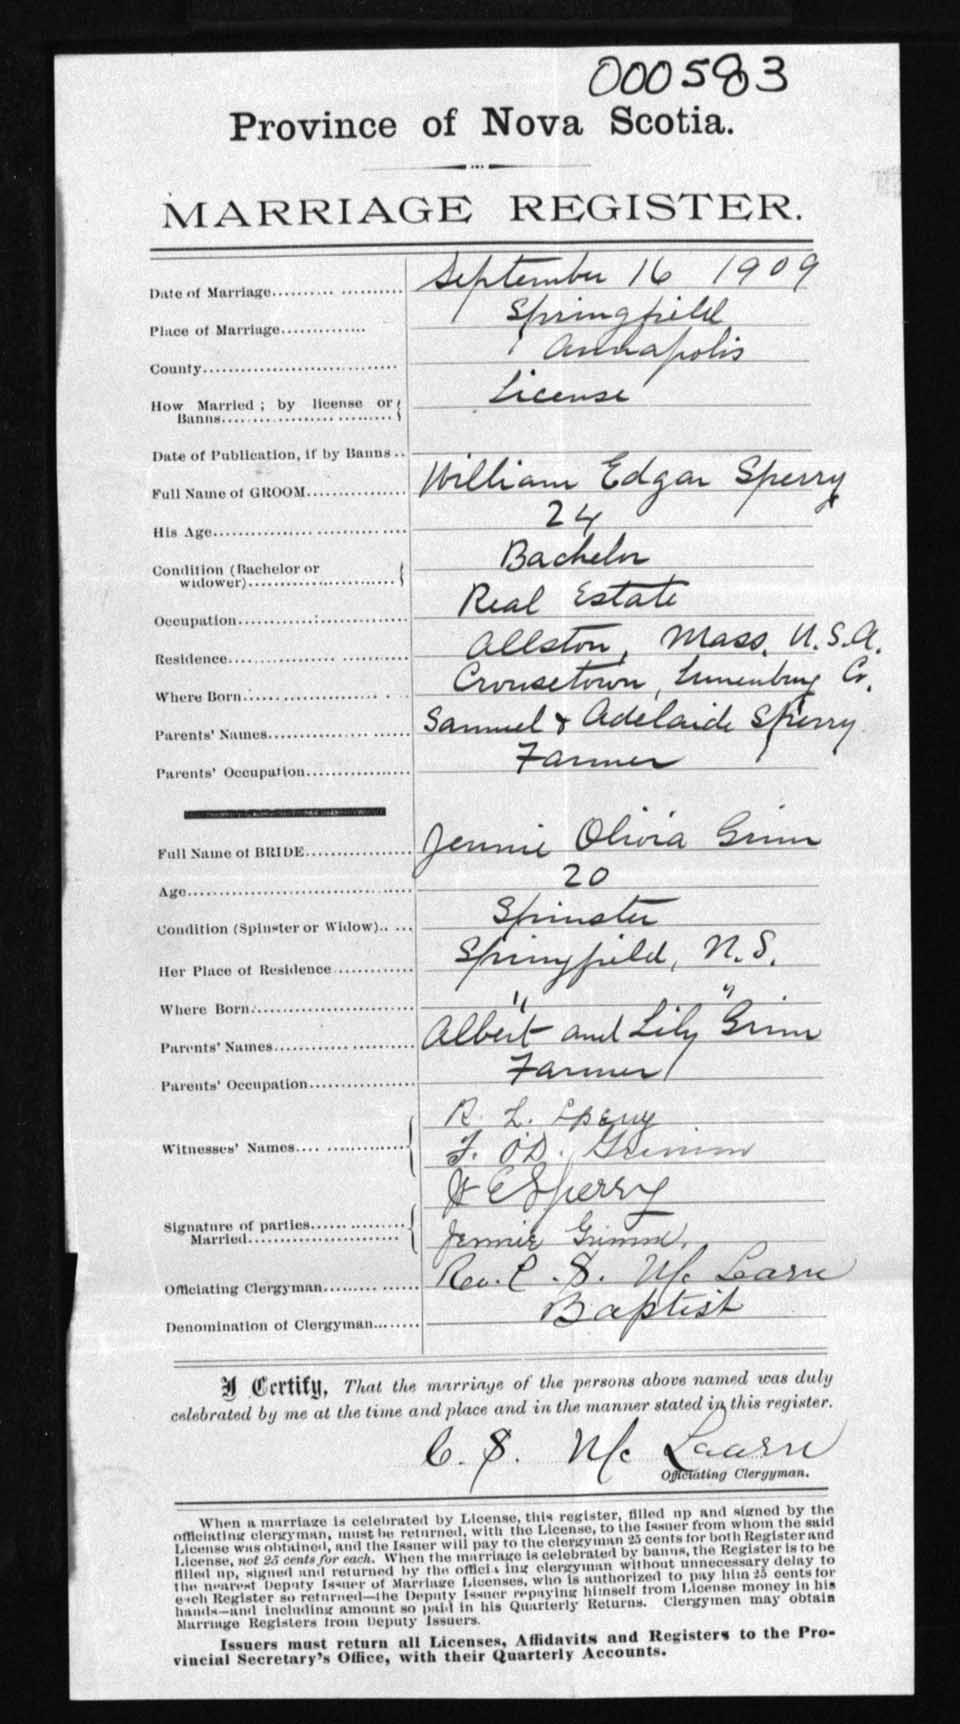 000583
Province of Nova Scotia.
MARRIAGE REGISTER.
Date of Marriage.................... September 16 1909
Place of Marriage............. Springfield
County............................. Annapolis
How Married; by license or
Banns......................... License
Date of Publication, if by Banns..
Full Name of GROOM................ William Edgar Sperry
His Age............................. 24
Condition (Bachelor or
widower)......................... Bachelor
Occupation......................... Real Estate
Residence......................... Allston, Mass. U.S.A.
Where Born..................... Crousetown, Lunenburg Co.
Parents' Names..................... Samuel & Adelaide Sperry
Parents' Occupation................. Farmer
Full Name of BRIDE................. Jennie Olivia Grim
Age.................................. 20
Condition (Spinster or Widow)..... Spinster
Her Place of Residence............. Springfield, N.S.
Where Born......................... " "
Parents' Names..................... Albert and Lily Grim
Parents' Occupation................. Farmer
Witnesses' Names................. R. L. Sperry
F. O'D. Grimm
Signature of parties............... W E Sperry
Married......................... Jennie Grimm.
Officiating Clergyman............... Rev. C. S. Mc Learn
Denomination of Clergyman........ Baptist
I Certify, That the marriage of the persons above named was duly
celebrated by me at the time and place and in the manner stated in this register.
C. S. Mc Learn
Officiating Clergyman.
When a marriage is celebrated by License, this register, filled up and signed by the
officiating clergyman, must be returned, with the License, to the Issuer from whom the said
License was obtained, and the Issuer will pay to the clergyman 25 cents for both Register and
License, not 25 cents for each. When the marriage is celebrated by banns, the Register is to be
filled up, signed and returned by the offici ing clergyman without unnecessary delay to
the nearest Deputy Issuer of Marriage Licenses, who is authorized to pay him 25 cents for
each Register so returned—the Deputy Issuer repaying himself from License money in his
hands—and including amount so paid in his Quarterly Returns. Clergymen may obtain
Marriage Registers from Deputy Issuers.
Issuers must return all Licenses, Affidavits and Registers to the Pro-
vincial Secretary's Office, with their Quarterly Accounts.